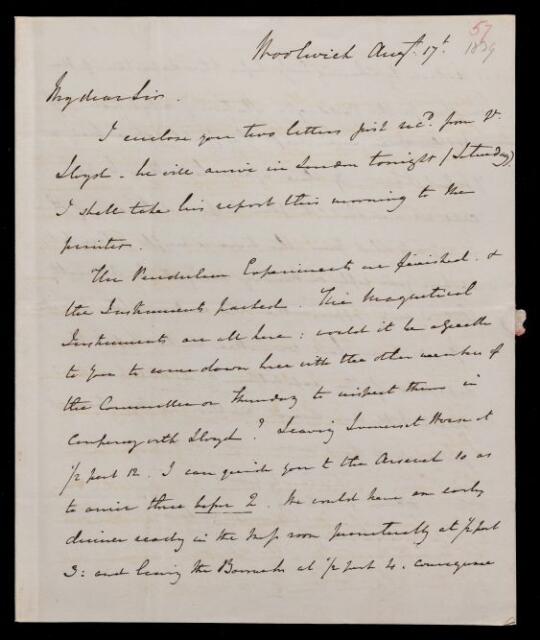 57
1839
Woolwich Augt. 17t.
My dear Sir.
I enclose you two letters just recd. from
Lloyd - he will arrive in London tonight (Saturday)
I shall take his report this morning to the
printer.
The Pendulum Experiments are finished. &
the Instruments packed. The Magnetical
Instruments are all here: would it be agreeable
to you to come down here with the other members of
the Committee on Thursday to inspect them in
Company with Lloyd? Leaving Somerset House at
1/2 past 12. I can guide you to the Arsenal so as
to arrive there before 2. We could have an early
dinner ready in the Mess room punctually at 1/2 past
3: and leaving the Barracks at 1/2 past 4.